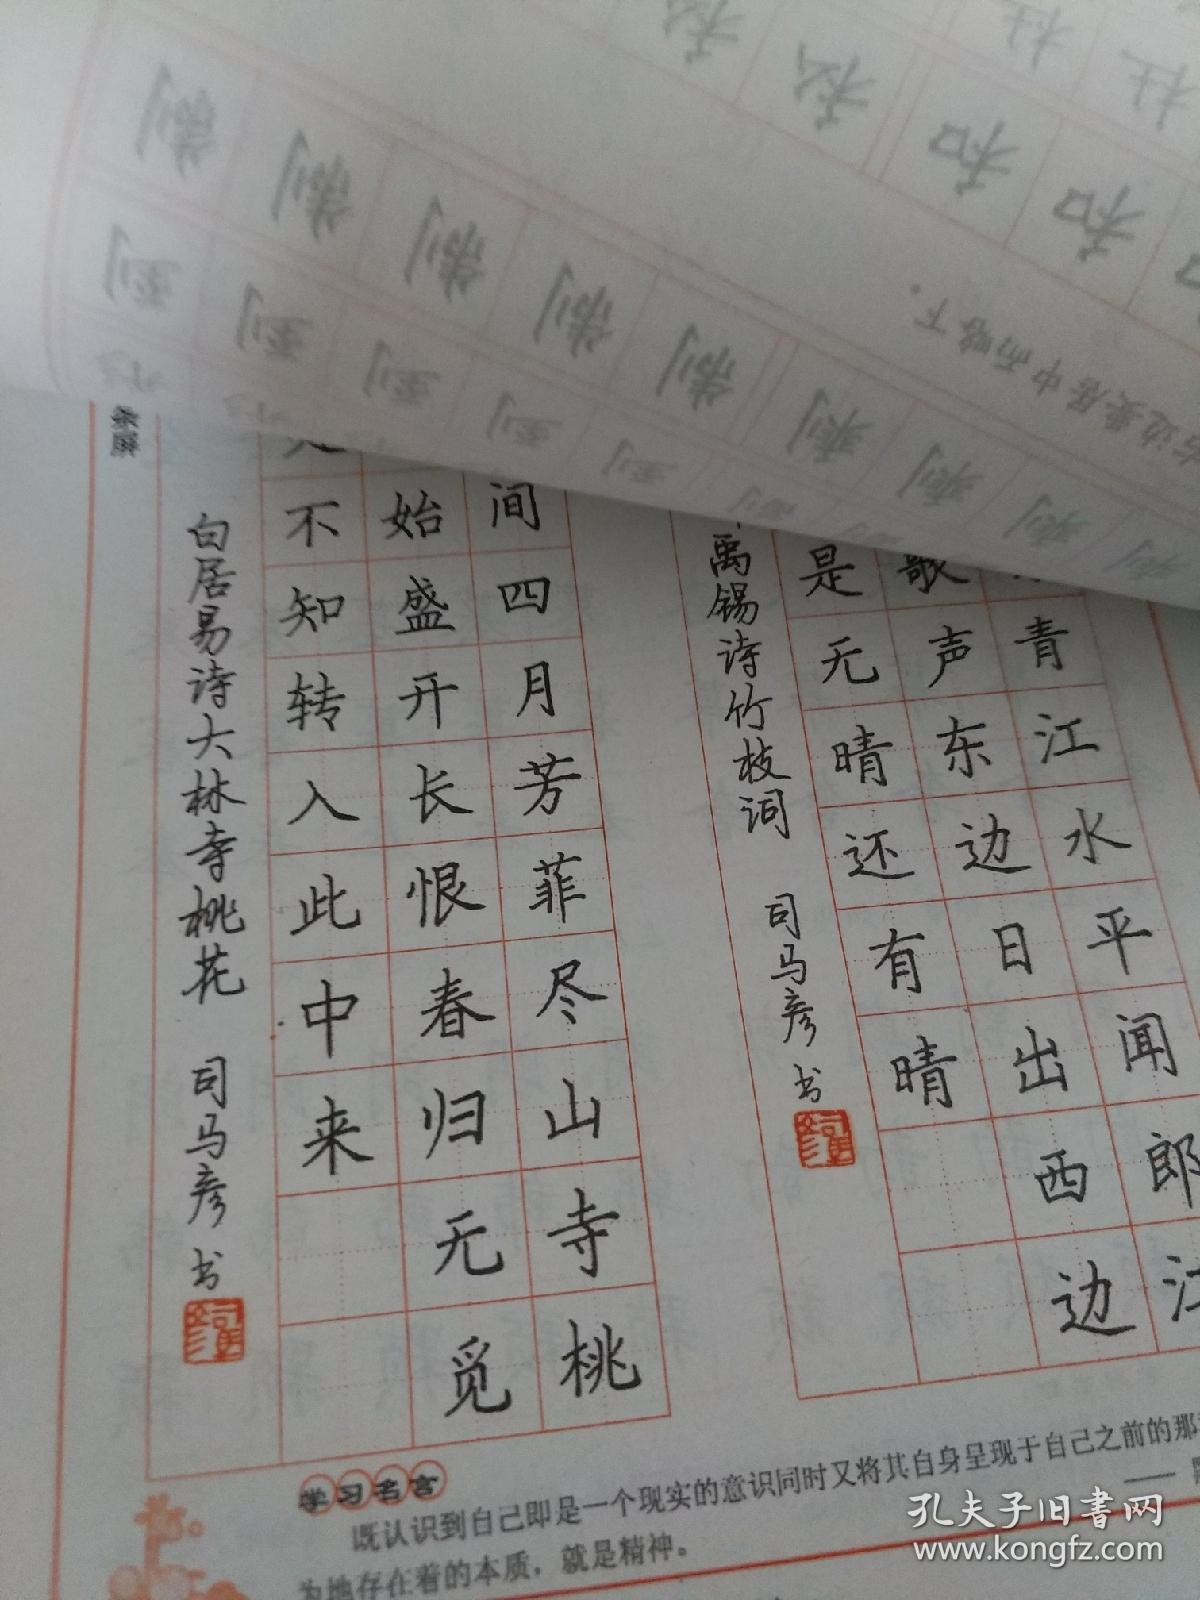 制 制 制 制 制 刺 刺 刺 刺
到 到 到 到 到 到
私 私 和 和
杜 杜
右边要居中而略下。
条屏
间四月芳菲尽山寺桃
始盛开长恨春归无觅
不知转入此中来
白居易诗大林寺桃花 司马彦书
青江水平闻郎江
歌声东边日出西边
是无晴还有晴
禹锡诗竹枝词 司马彦书
学习名言
既认识到自己即是一个现实的意识同时又将其自身呈现于自己之前的那
为地存在着的本质，就是精神。
孔夫子旧书网
www.kongfz.com